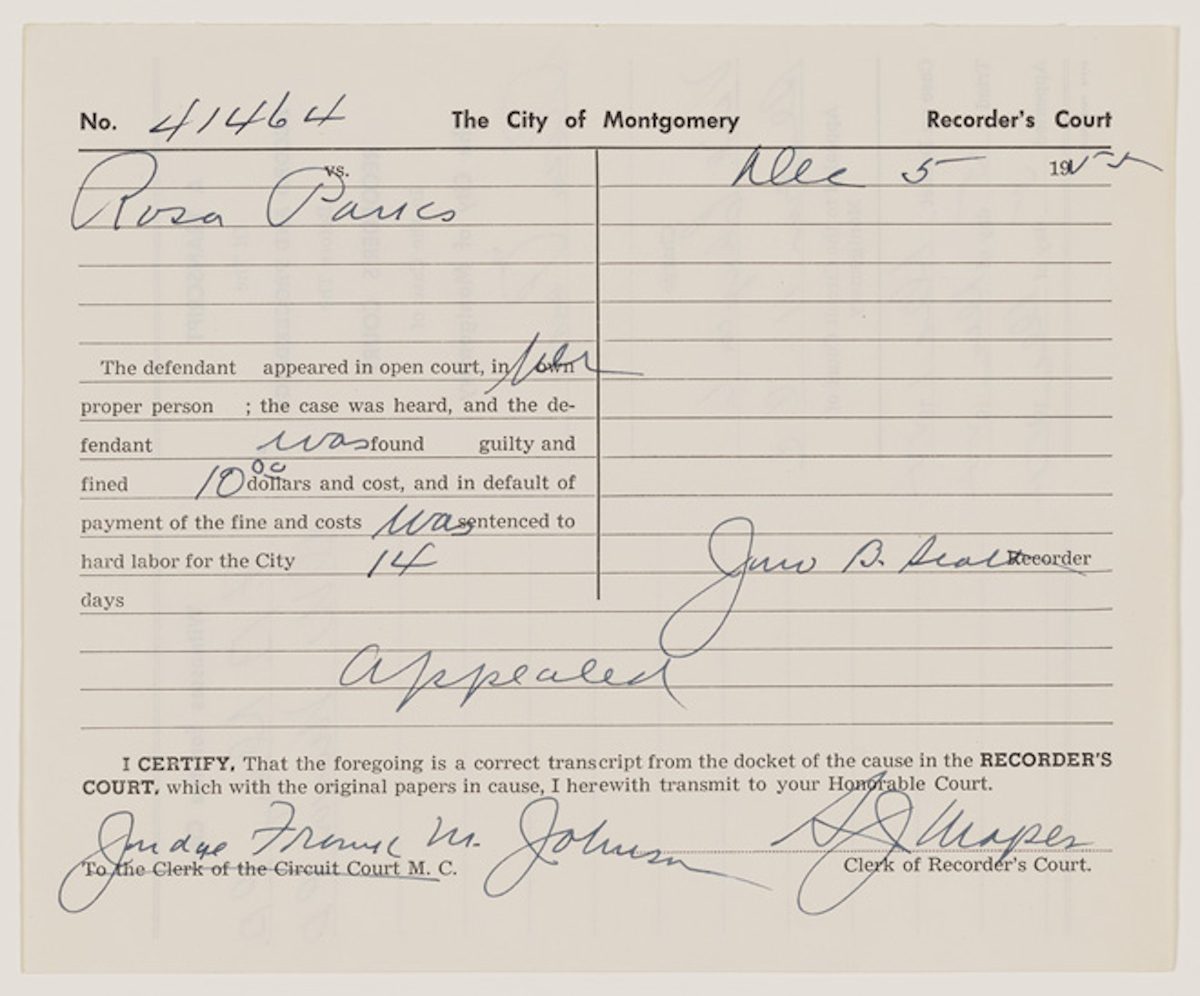 No. 41464 The City of Montgomery Recorder's Court
vs. Dec 5 1955
Rosa Parks
The defendant appeared in open court, in her own
proper person ; the case was heard, and the de-
fendant was found guilty and
fined 10 00 dollars and cost, and in default of
payment of the fine and costs was sentenced to
hard labor for the City 14
B. Recorder
days
Appealed
I CERTIFY, That the foregoing is a correct transcript from the docket of the cause in the RECORDER'S
COURT, which with the original papers in cause, I herewith transmit to your Honorable Court.
Judge Frank M. Johnson
To the Clerk of the Circuit Court M. C. Clerk of Recorder's Court.